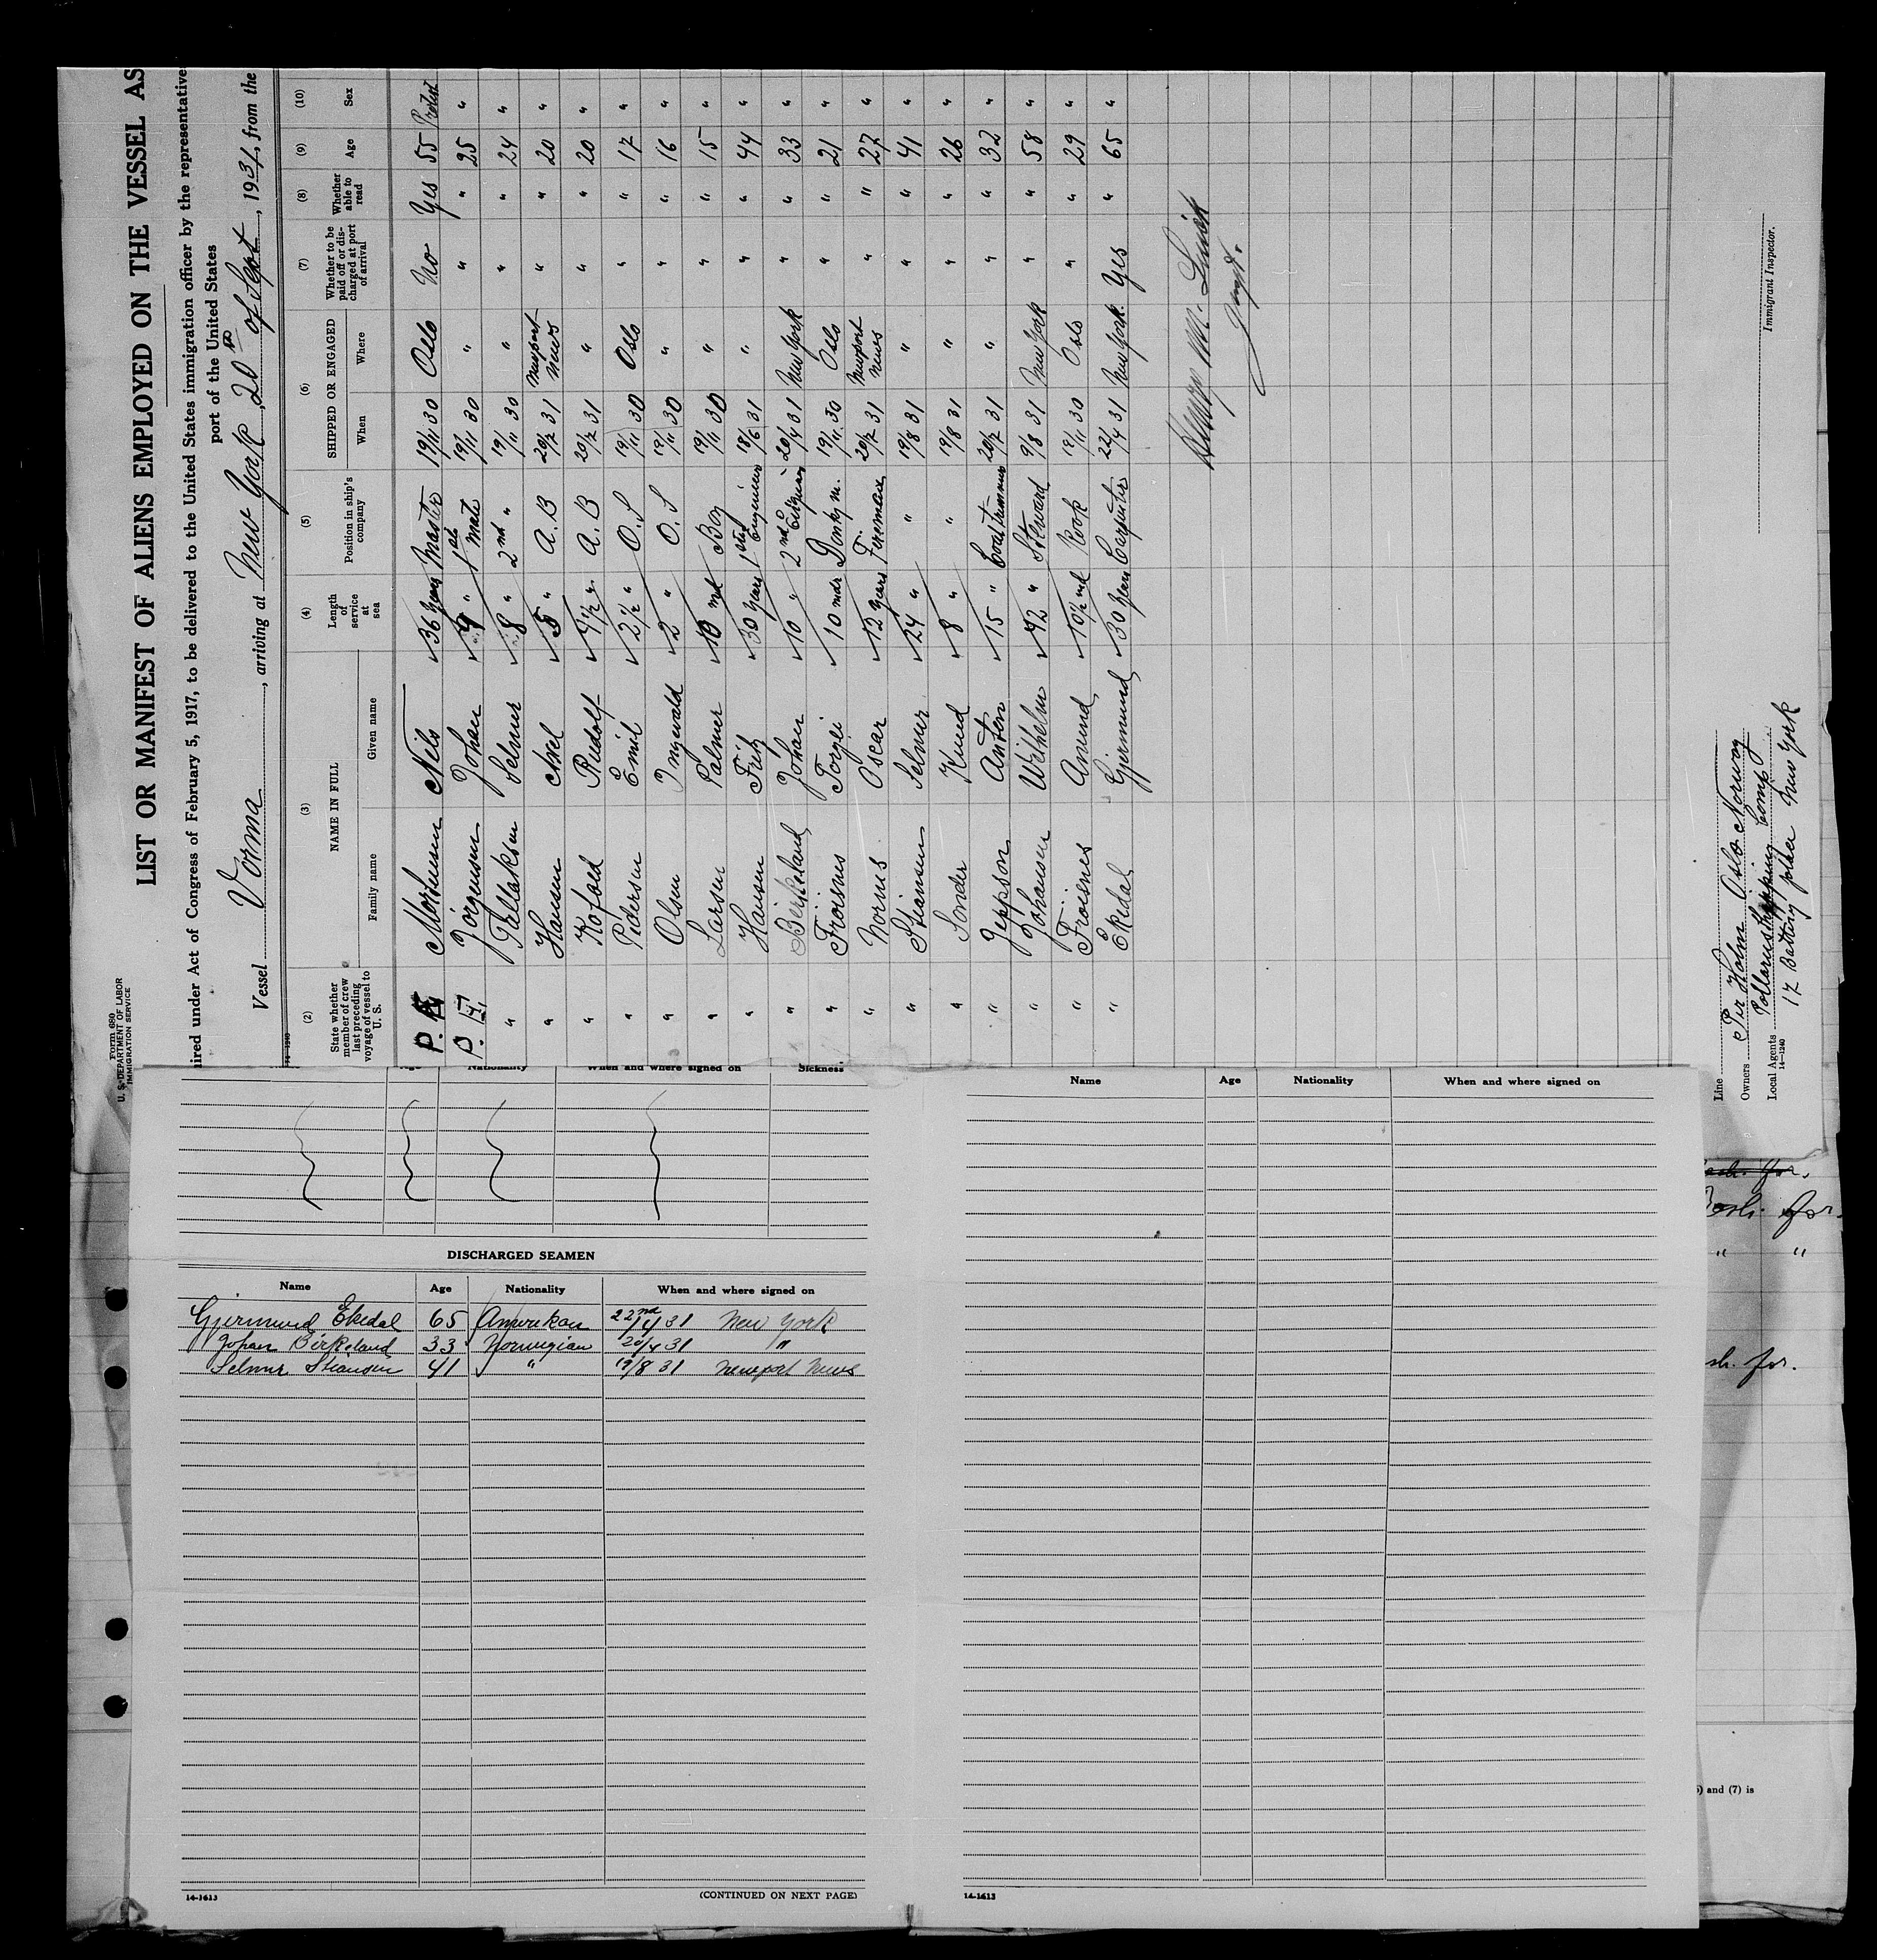 Form 680
U. S. DEPARTMENT OF LABOR
IMMIGRATION SERVICE
LIST OR MANIFEST OF ALIENS EMPLOYED ON THE VESSEL AS
ired under Act of Congress of February 5, 1917, to be delivered to the United States immigration officer by the representative
port of the United States
Vessel Vorma, arriving at New York, 20th of Sept, 1931, from the
14-1240
(2) (3) (4) (5) (6) (7) (8) (9) (10)
State whether member of crew last preceding voyage of vessel to U. S. NAME IN FULL Length of service at sea Position in ship's company SHIPPED OR ENGAGED Whether to be paid off or discharged at port of arrival Whether able to read Age Sex
Family name Given name When Where
P. Mortensen Nils 36 years Master 19/11 30 Oslo No Yes 55
P. Jörgensen Johan 9 " 1st mate 19/11 30 " " " 25 "
" Tallaksen Selmer 8 " 2nd " 19/11 30 " " " 24 "
" Hansen Axel 5 " A. B 20/7 31 Newport News " " 20 "
" Kofoed Rudolf 4 1/2 " A. B 20/7 31 " " " 20 "
" Pedersen Emil 2 1/2 " O. S 19/11 30 Oslo " " 17 "
" Olsen Ingvald 2 " O. S 19/11 30 " " " 16 "
" Larsen Palmer 10 md Boy 19/11 30 " " " 15 "
" Hansen Fritz 30 years 1st Engineer 18/6 31 " " " 44 "
" Birkeland Johan 10 " 2nd Engineer 20/4 31 New York " " 33 "
" Froisnes Torgei 10 mdr Donkym. 19/11 30 Oslo " " 21 "
" Nornes Oscar 12 years Fireman 20/7 31 Newport News " " 27 "
" Stiansen Selmer 24 " " 19/8 31 " " " 41 "
" Sonder Knud 8 " " 19/8 31 " " " 26 "
" Jeppson Anton 15 " Coaltrimmer 20/7 31 " " " 32 "
" Johansen Wilhelm 42 " Steward 9/8 31 New York " " 58 "
" Froisnes Amund 10 1/2 md Kook 19/11 30 Oslo " " 29 "
" Ekedal Gjermund 30 years Carpenter 22/4 31 New York. Yes " 65 "
Line
Owners Per Holm Oslo Norway
Local Agents
14-1240
17 Battery place New York
Immigrant Inspector.
Nationality When and where signed on Sickness
DISCHARGED SEAMEN
Name Age Nationality When and where signed on
Gjermund Ekedal 65 Amerikan 22nd/4 31 New York
Johan Birkeland 33 Norwegian 20/4 31 "
Selmer Stiansen 41 " 19/8 31 Newport News
14-1613
(CONTINUED ON NEXT PAGE)
Name Age Nationality When and where signed on
14-1613
for.
for.
" "
for.
) and (7) is